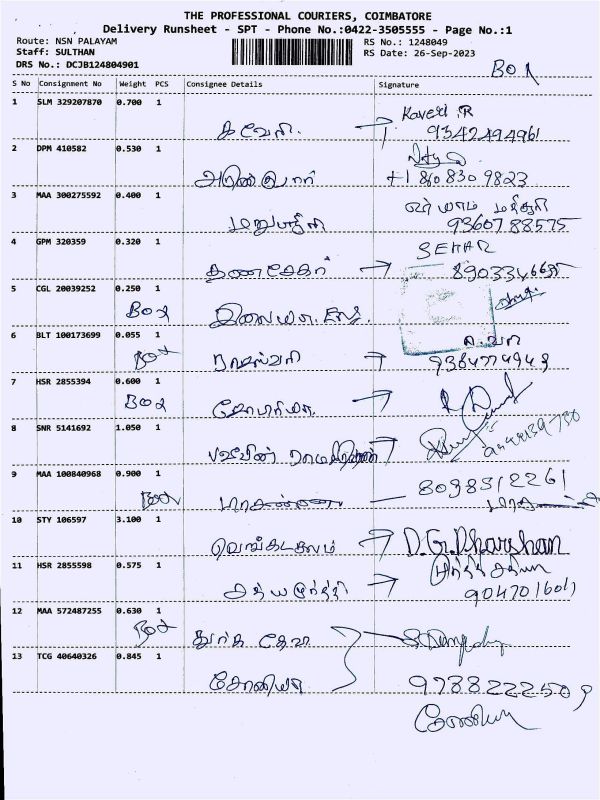 THE PROFESSIONAL COURIERS, COIMBATORE
Delivery Runsheet - SPT - Phone No.:0422-3505555 - Page No.:1
Route: NSN PALAYAM
RS No.: 1248049
Staff: SULTHAN
RS Date: 26-Sep-2023
DRS No.: DCJB124804901
BOX
S No Consignment No Weight PCS Consignee Details Signature
1 SLM 329207870 0.700 1 Kaveri .R
காவேரி. 9342494961
2 DPM 410582 0.530 1
அருண்குமார் +1 860 830 9823
3 MAA 300275592 0.400 1
9360788575
4 GPM 320359 0.320 1 SEKAR
தனசேகர்
5 CGL 20039252 0.250 1
Box
6 BLT 100173699 0.055 1
Box ராஜேஸ்வரி
7 HSR 2855394 0.600 1
Box
8 SNR 5141692 1.050 1
9 MAA 100840968 0.900 1 8098312261
Box
10 STY 106597 3.100 1
வெங்கடாசலம் D.G.Dharshan
11 HSR 2855598 0.575 1
சத்யமூர்த்தி 9047016011
12 MAA 572487255 0.630 1
Box துர்கா தேவி
13 TCG 40640326 0.845 1
சோனியா 9788222509
சோனியா